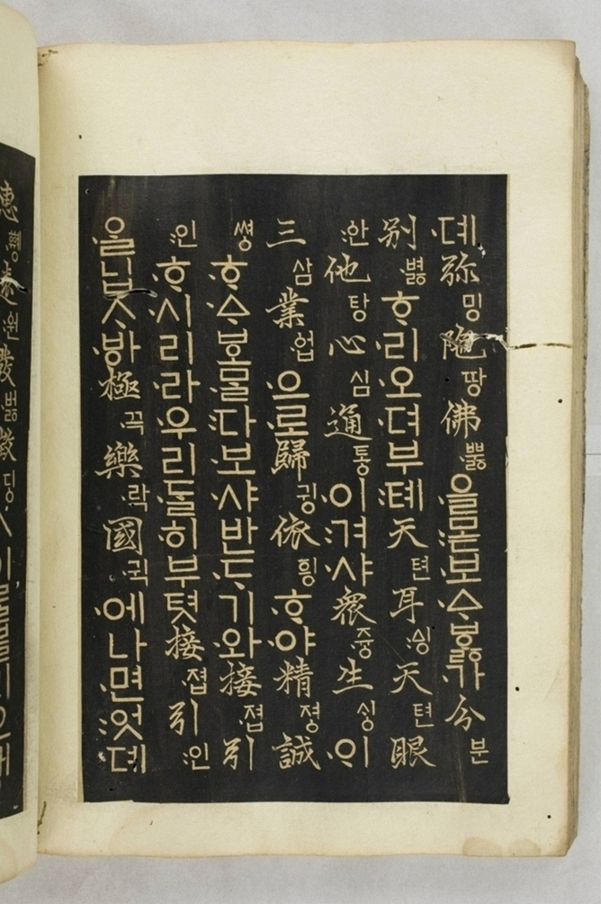 뎨彌밍陁땅佛뿛을몯보ᅀᆞᄫᆞᇙ가分분
别볋ᄒᆞ리오뎌부톄天텬耳ᅀᅵᆼ天텬眼
안他탕心심通통이겨샤衆즁生ᄉᆡᆼ이
三삼業업으로歸귕依ᅙᅴᆼᄒᆞ야精졍誠
쎵ᄒᆞᅀᆞᄫᅩᄆᆞᆯ다보샤반ᄃᆞ기와接졉引
인ᄒᆞ시리라우리ᄃᆞᆯ히부텻接졉引인
을닙ᄉᆞᄫᅡ極끅樂락國귁에나면엇뎨